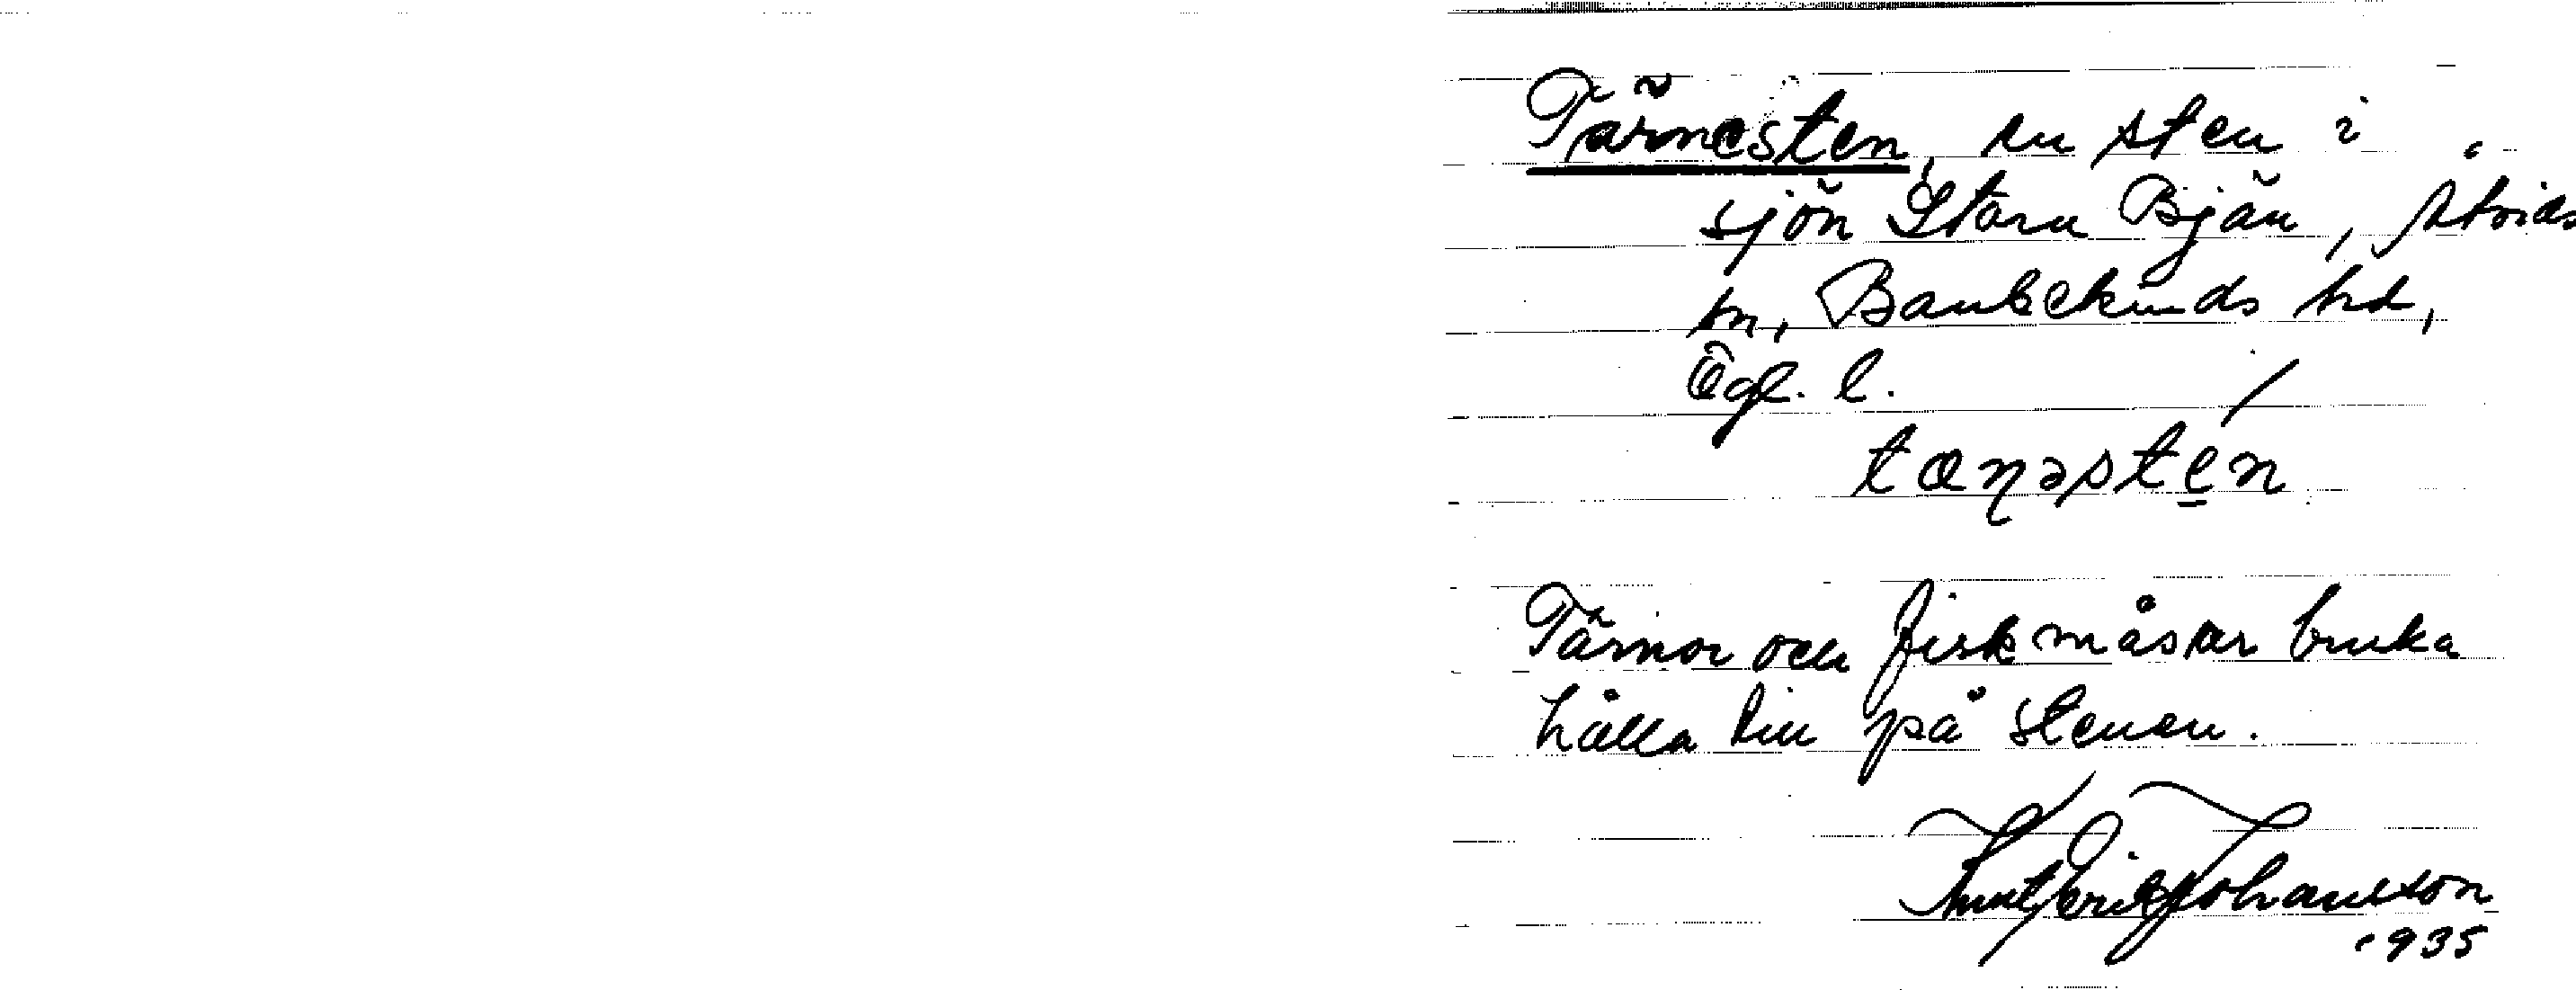 Tärnesten, en sten i
sjön Stora Bjän, Åtvids
sn, Bankekinds hd,
Ögl. l.
tanəsten
Tärnor och fiskmåsar bruka
hålla till på stenen.
Knut Erik Johansson
1935